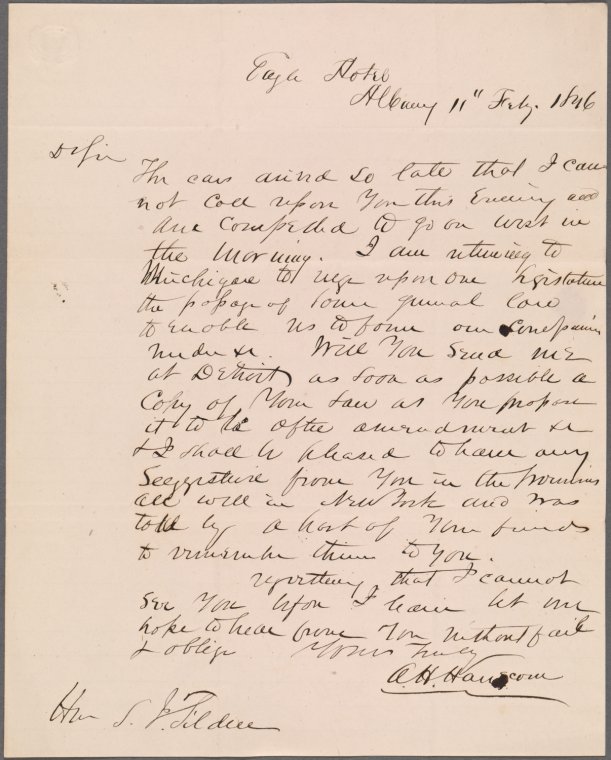 Eagle Hotel
Albany 11" Feby. 1846
Dr Sir
The cars arived so late that I can
not call upon You this Evening and
are Compelled to go on west in
the Morning. I am returning to
Michigan to urge upon our legislature
the passage of some general law
to Enable us to form our Companies
under &c. Will You Send me
at Detroit as soon as possible a
Copy of Your Law as You propose
it to be after amendment &c
& I shall be pleased to have any
Suggestions from You in the
all well in New York and was
told by a host of Your friends
to remember them to You.
regretting that I cannot
See You before I leave let me
hope to hear from You without fail
& oblige Yours Truly
A. H. Hanscom
Hon S. J. Tilden